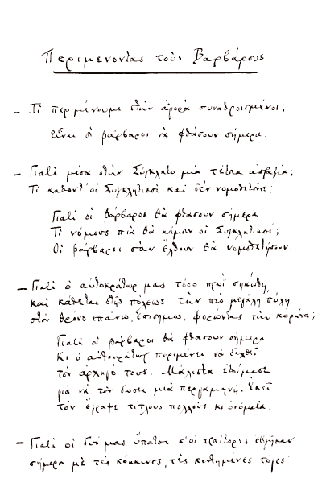 Περιμένοντας τους Βαρβάρους
— Τι περιμένουμε στην αγορά συναθροισμένοι;
Είναι οι βάρβαροι να φθάσουν σήμερα.
— Γιατί μέσα στην Σύγκλητο μια τέτοια απραξία;
Τι κάθοντ' οι Συγκλητικοί και δεν νομοθετούνε;
Γιατί οι βάρβαροι θα φθάσουν σήμερα
Τι νόμους πια θα κάμουν οι Συγκλητικοί;
Οι βάρβαροι σαν έλθουν θα νομοθετήσουν
— Γιατί ο αυτοκράτωρ μας τόσο πρωί σηκώθη,
και κάθεται στης πόλεως την πιο μεγάλη πύλη
στον θρόνο επάνω, επίσημος, φορώντας την κορώνα;
Γιατί οι βάρβαροι θα φθάσουν σήμερα
Κι ο αυτοκράτωρ περιμένει να δεχθεί
τον αρχηγό τους. Μάλιστα ετοίμασε
για να τον δώσει μια περγαμηνή. Εκεί
τον έγραψε τίτλους πολλούς κι ονόματα.
— Γιατί οι δυο μας ύπατοι κ' οι πραίτορες εβγήκαν
σήμερα με τες κόκκινες, τες κεντημένες τόγες·